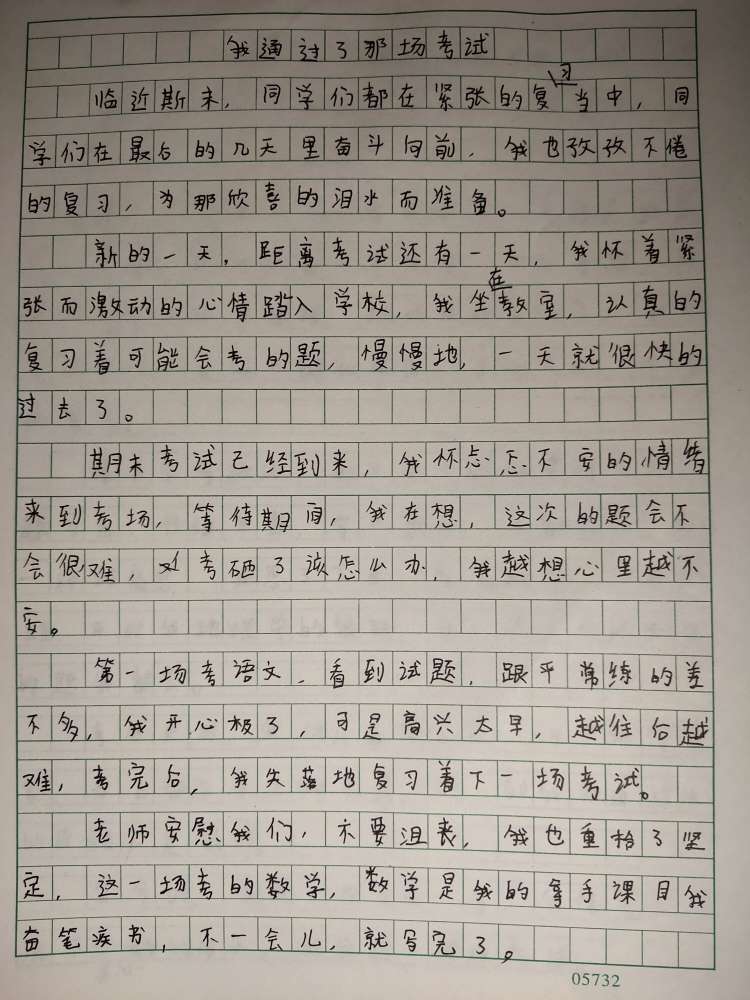 我通过了那场考试
临近斯末，同学们都在紧张的复习当中，同
学们在最后的几天里奋斗向前，我也孜孜不倦
的复习，为那欣喜的泪水而准备。
新的一天，距离考试还有一天，我怀着紧
张而激动的心情踏入学校，我坐在教室，认真的
复习着可能会考的题，慢慢地，一天就很快的
过去了。
期末考试已经到来，我怀忐忑不安的情绪
来到考场，等待期间，我在想，这次的题会不
会很难，考砸了该怎么办，我越想心里越不
安。
第一场考语文，看到试题，跟平常练的差
不多，我开心极了，可是高兴太早，越往后越
难，考完后，我失落地复习着下一场考试。
老师安慰我们，不要沮丧，我也重拾了坚
定，这一场考的数学，数学是我的拿手课目我
奋笔疾书，不一会儿，就写完了。
05732